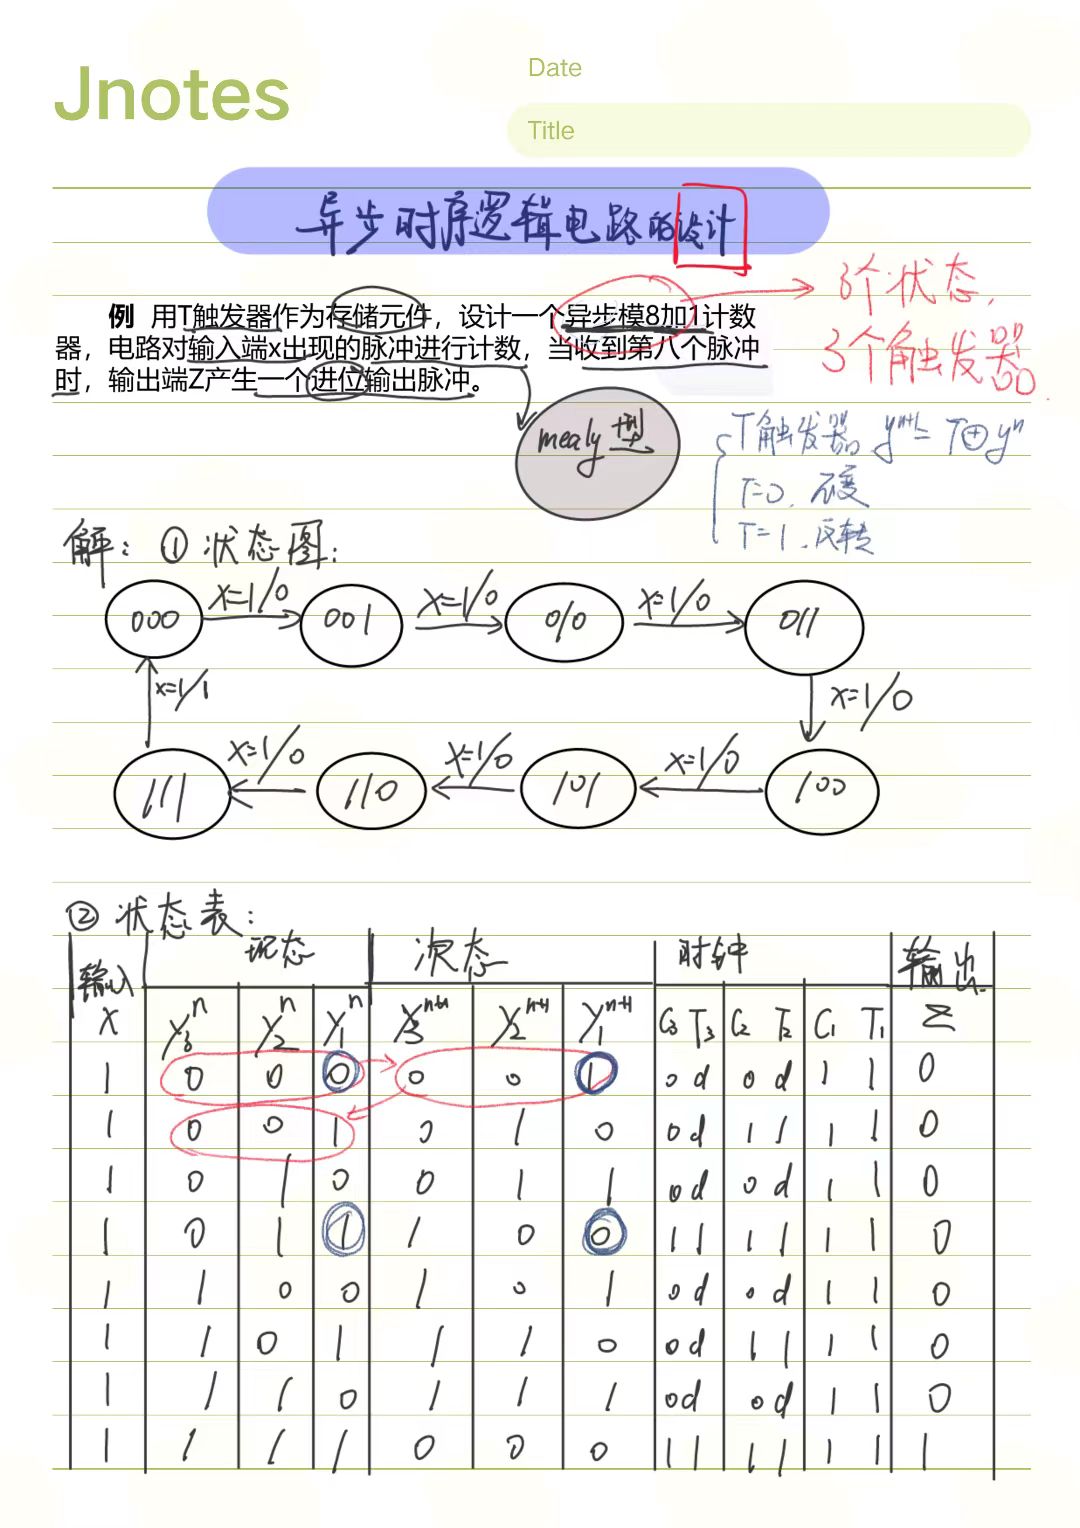 Jnotes
Date
Title
异步时序逻辑电路的设计
例 用T触发器作为存储元件，设计一个异步模8加1计数
器，电路对输入端x出现的脉冲进行计数，当收到第八个脉冲
时，输出端Z产生一个进位输出脉冲。
8个状态，
3个触发器
mealy型
T触发器 yⁿ⁺¹=T⊕yⁿ
T=0，不变
T=1，反转
解：① 状态图：
000 x=1/0 001 x=1/0 010 x=1/0 011
x=1/1 x=1/0
111 x=1/0 110 x=1/0 101 x=1/0 100
② 状态表：
输入 现态 次态 时钟 输出
X y₃ⁿ y₂ⁿ y₁ⁿ y₃ⁿ⁺¹ y₂ⁿ⁺¹ y₁ⁿ⁺¹ C₃ T₃ C₂ T₂ C₁ T₁ Z
1 0 0 0 0 0 1 0 d 0 d 1 1 0
1 0 0 1 0 1 0 0 d 1 1 1 1 0
1 0 1 0 0 1 1 0 d 0 d 1 1 0
1 0 1 1 1 0 0 1 1 1 1 1 1 0
1 1 0 0 1 0 1 0 d 0 d 1 1 0
1 1 0 1 1 1 0 0 d 1 1 1 1 0
1 1 1 0 1 1 1 0 d 0 d 1 1 0
1 1 1 1 0 0 0 1 1 1 1 1 1 1